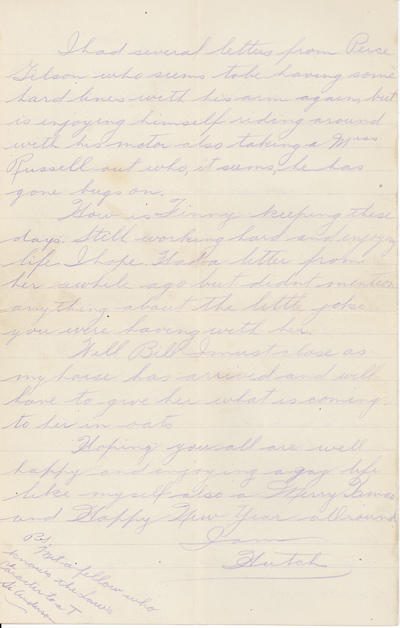 I had several letters from Perce
Gibson who seems to be having some
hard lines with his arm again, but
is enjoying himself riding around
with his motor also taking a Miss
Russell out who, it seems, he has
gone bugs on.
How is Finny keeping these
days. Still working hard and enjoying
life I hope. Had a letter from
her awhile ago but didnt mention
anything about the little joke
you were having with her.
Well Bill I must close as
my horse has arrived and will
have to give her what is coming
to her in oats
Hoping you all are well
happy and enjoying a gay life
like myself also a Merry Xmas
and Happy New Year all round
I am
Hutch
P.S. Met a fellow who
knows the
character to a T
Anderson